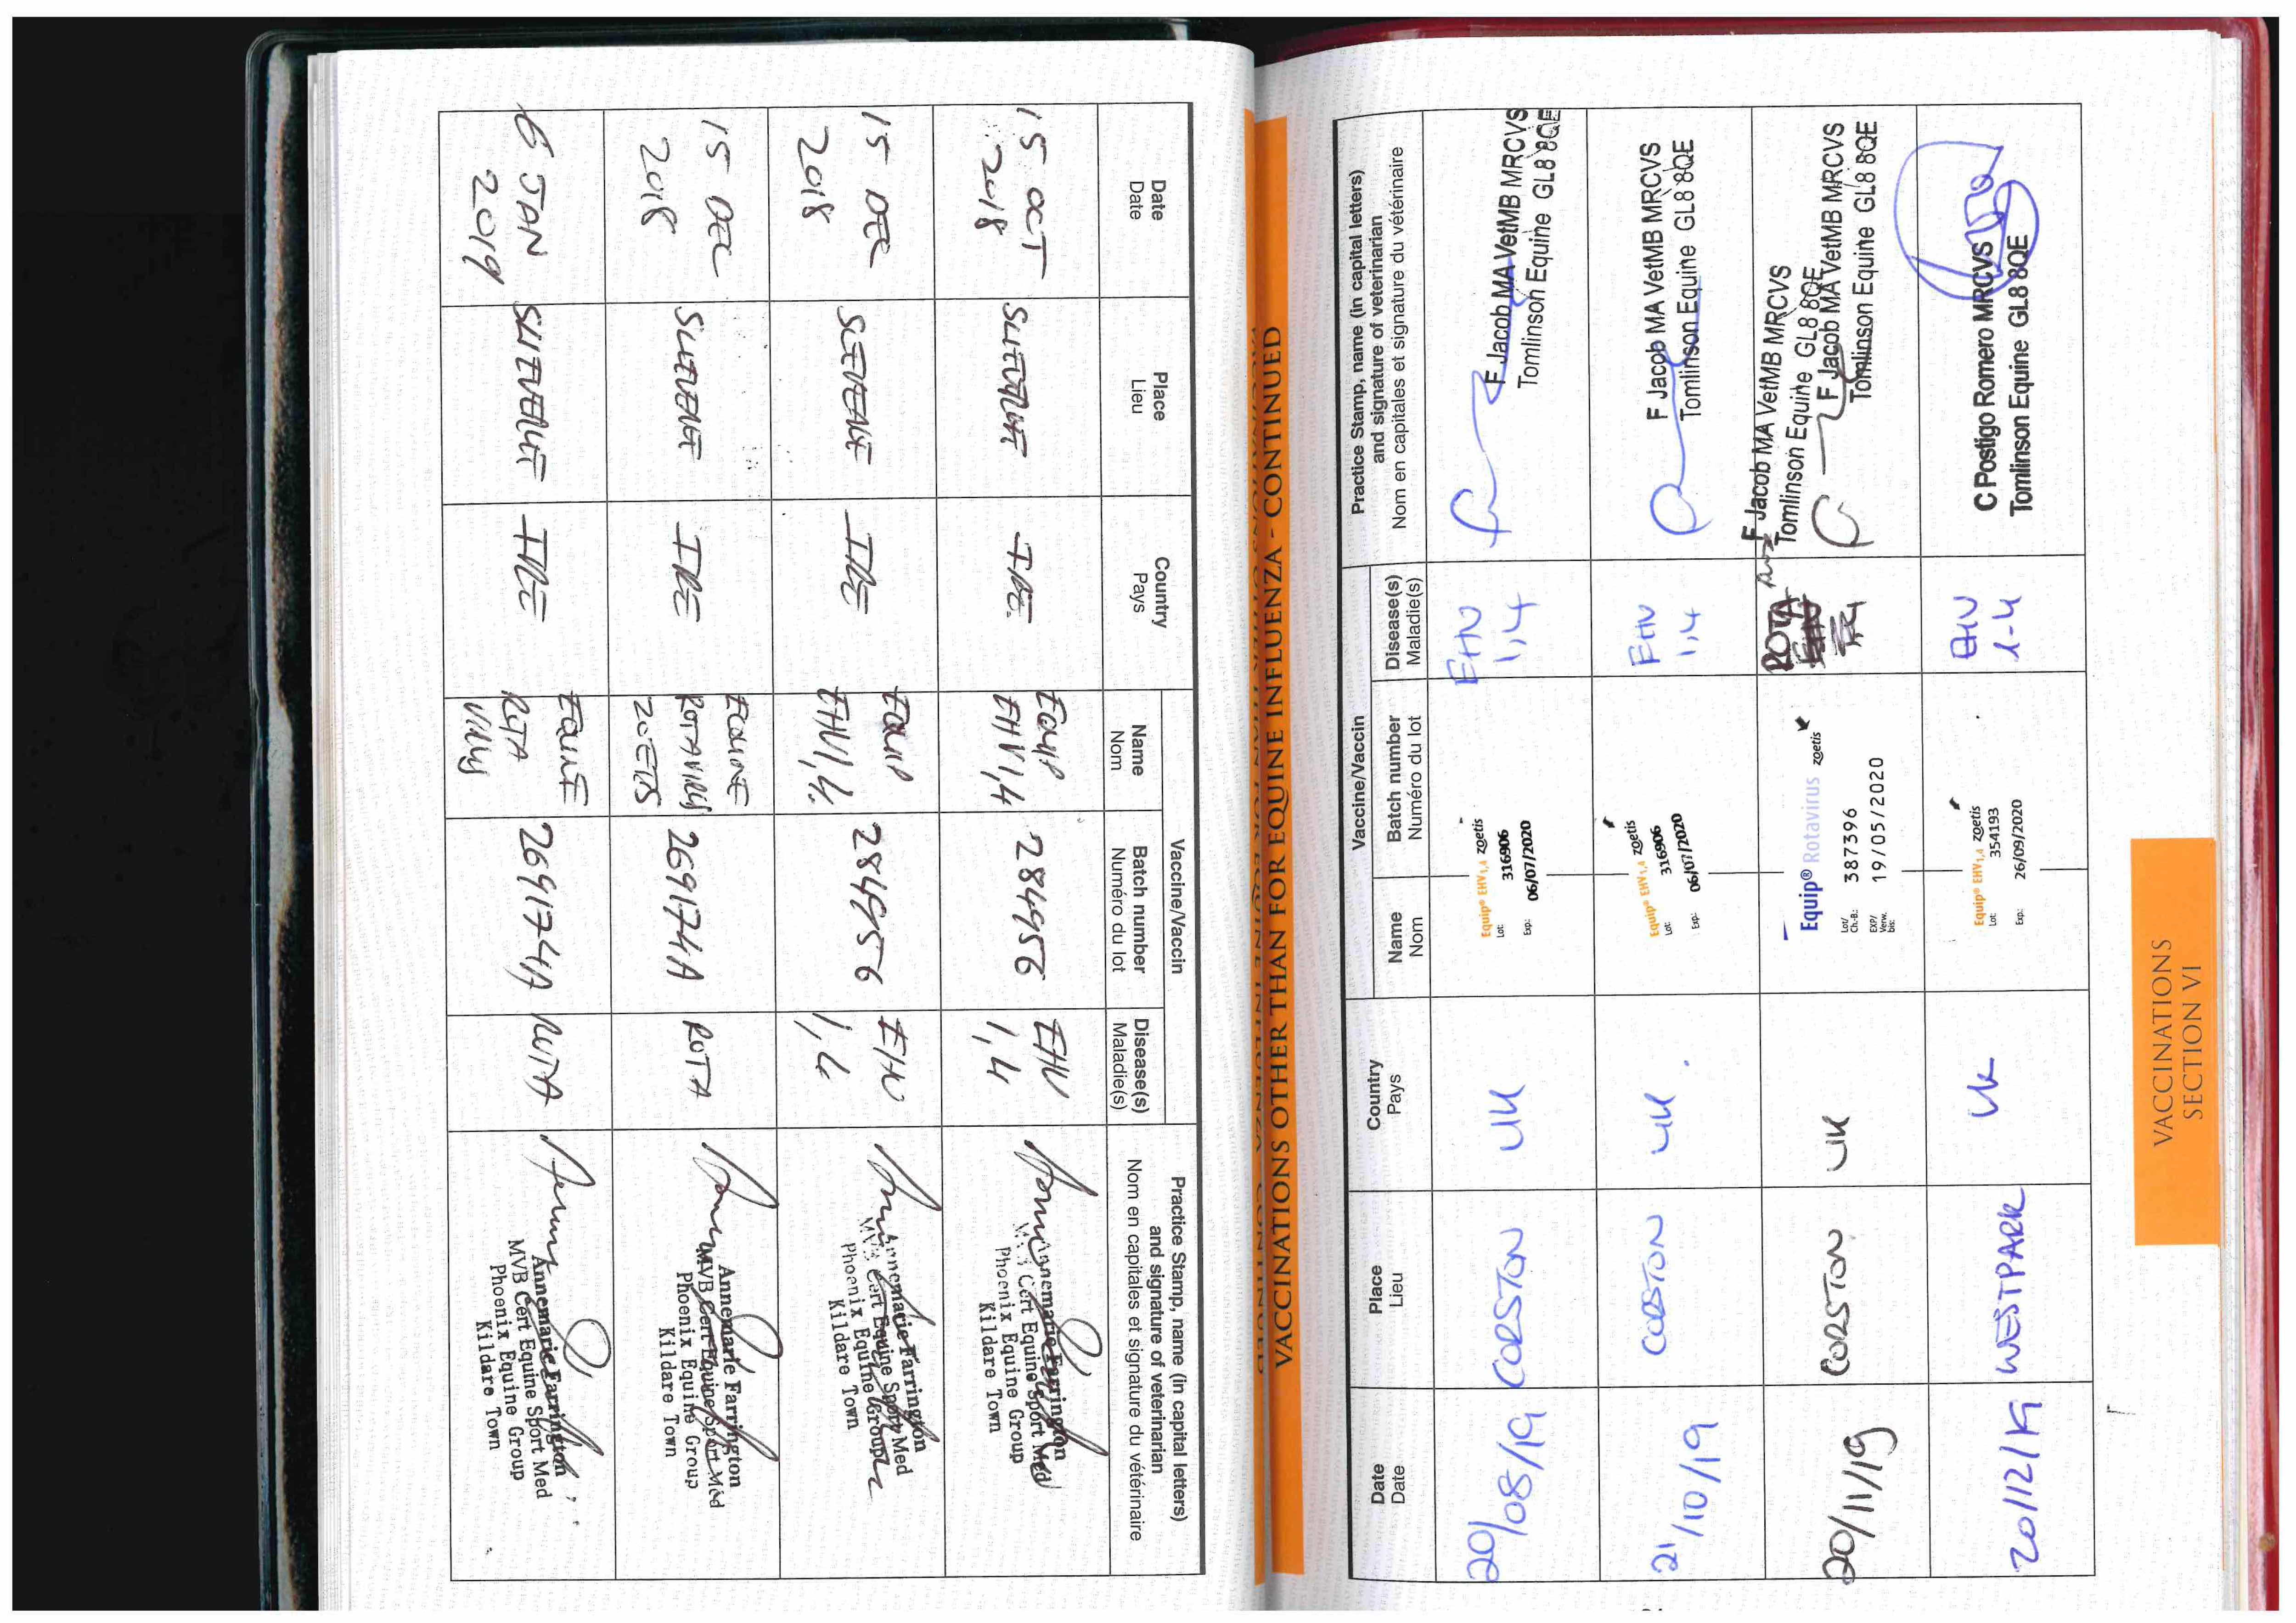 Date
Date
Place
Lieu
Country
Pays
Vaccine/Vaccin
Name
Nom
Batch number
Numéro du lot
Disease(s)
Maladie(s)
Practice Stamp, name (in capital letters)
and signature of veterinarian
Nom en capitales et signature du vétérinaire
15 OCT
2018
IRE
EQUIP
EHV1,4
284956
EHV
1,4
Annemarie Farrington
MVB Cert Equine Sport Med
Phoenix Equine Group
Kildare Town
15 DEC
2018
IRE
EQUIP
EHV1,4
284956
EHV
1,4
Annemarie Farrington
MVB Cert Equine Sport Med
Phoenix Equine Group
Kildare Town
15 DEC
2018
IRE
EQUINE
ROTAVIRUS
ZOETIS
269174A
ROTA
Annemarie Farrington
MVB Cert Equine Sport Med
Phoenix Equine Group
Kildare Town
6 JAN
2019
IRE
EQUINE
ROTA
VIRUS
269174A
ROTA
Annemarie Farrington
MVB Cert Equine Sport Med
Phoenix Equine Group
Kildare Town
VACCINATIONS OTHER THAN FOR EQUINE INFLUENZA - CONTINUED
Date
Date
Place
Lieu
Country
Pays
Vaccine/Vaccin
Name
Nom
Batch number
Numéro du lot
Disease(s)
Maladie(s)
Practice Stamp, name (in capital letters)
and signature of veterinarian
Nom en capitales et signature du vétérinaire
20/08/19
CORSTON
UK
Equip® EHV1,4 zoetis
Lot: 316906
Exp: 06/07/2020
EHV
1,4
F Jacob MA VetMB MRCVS
Tomlinson Equine GL8 8QE
21/10/19
CORSTON
UK
Equip® EHV1,4 zoetis
Lot: 316906
Exp: 06/07/2020
EHV
1,4
F Jacob MA VetMB MRCVS
Tomlinson Equine GL8 8QE
20/11/19
CORSTON
UK
Equip® Rotavirus zoetis
Lot/
Ch.-B.: 387396
EXP/
Verw.
bis: 19/05/2020
ROTA
F Jacob MA VetMB MRCVS
Tomlinson Equine GL8 8QE
F Jacob MA VetMB MRCVS
Tomlinson Equine GL8 8QE
20/12/19
WESTPARK
UK
Equip® EHV1,4 zoetis
Lot: 354193
Exp: 26/09/2020
EHV
1-4
C Postigo Romero MRCVS
Tomlinson Equine GL8 8QE
VACCINATIONS
SECTION VI